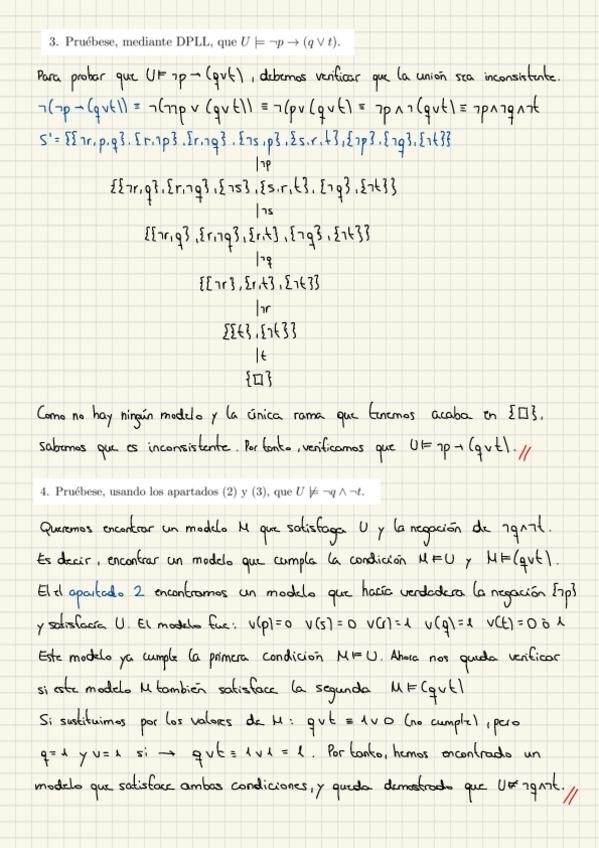 3. Pruébese, mediante DPLL, que U ⊨ ¬p → (q ∨ t).
Para probar que U⊨ ¬p→(q∨t), debemos verificar que la unión sea inconsistente.
¬(¬p→(q∨t)) ≡ ¬(¬¬p ∨ (q∨t)) ≡ ¬(p∨(q∨t) ≡ ¬p∧¬(q∨t) ≡ ¬p∧¬q∧¬t
S'= {{¬r,p,q}, {r,¬p}, {r,¬q}, {¬s,p}, {s,r,t}, {¬p}, {¬q}, {¬t}}
|¬p
{{¬r,q}, {r,¬q}, {¬s}, {s,r,t}, {¬q}, {¬t}}
|¬s
{{¬r,q}, {r,¬q}, {r,t}, {¬q}, {¬t}}
|¬q
{{¬r}, {r,t}, {¬t}}
|¬r
{{t}, {¬t}}
|t
{□}
Como no hay ningún modelo y la única rama que tenemos acaba en {□},
sabemos que es inconsistente. Por tanto, verificamos que U⊨ ¬p→(q∨t).//
4. Pruébese, usando los apartados (2) y (3), que U ⊭ ¬q ∧ ¬t.
Queremos encontrar un modelo M que satisfaga U y la negación de ¬q∧¬t.
Es decir, encontrar un modelo que cumpla la condición M⊨U y M⊨(q∨t).
El el apartado 2 encontramos un modelo que hacía verdadera la negación {¬p}
y satisfacía U. El modelo fue: v(p)=0 v(s)=0 v(r)=1 v(q)=1 v(t)=0 ò 1
Este modelo ya cumple la primera condición M⊨U. Ahora nos queda verificar
si este modelo M también satisface la segunda M⊨(q∨t)
Si sustituimos por los valores de M: q∨t ≡ 1∨0 (no cumple), pero
q=1 y v=1 si → q∨t ≡ 1∨1 = 1. Por tanto, hemos encontrado un
modelo que satisface ambas condiciones, y queda demostrado que U⊭ ¬q∧¬t.//